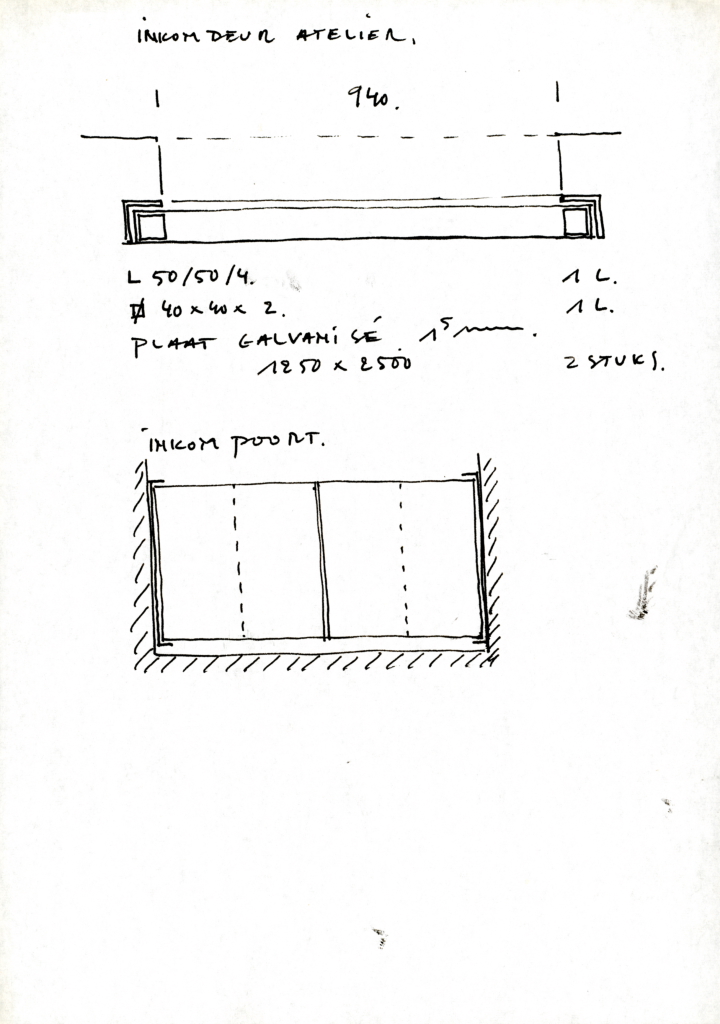 INKOMDEUR ATELIER.
940.
L 50/50/4. 1 L.
40 x 40 x 2. 1 L.
PLAAT GALVANISÉ 1⁵ mm.
1250 x 2500 2 STUKS.
INKOM POORT.